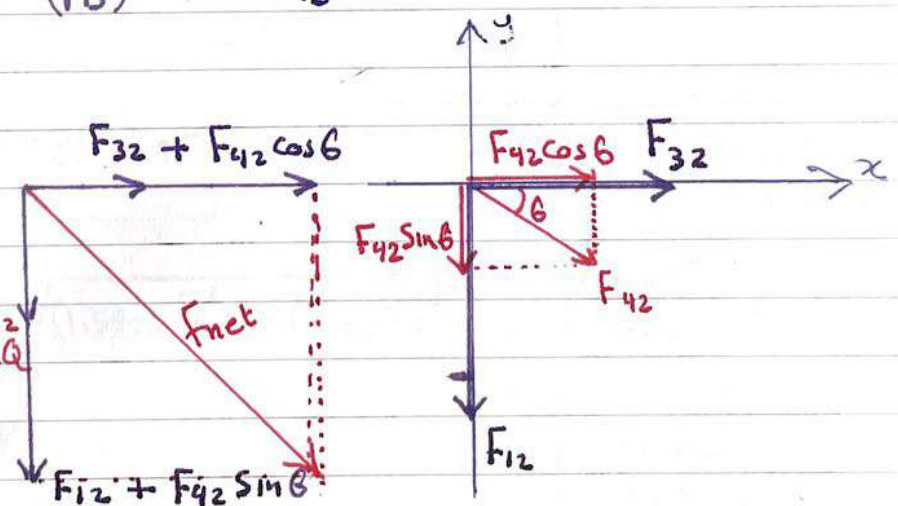 y
F32 + F42 cos6
F42 cos6
F32
x
6
F42 Sin6
F42
Fnet
2
Q
F12
F12 + F42 Sin6